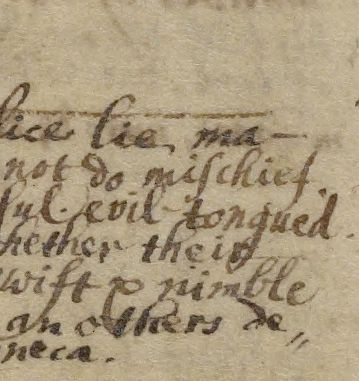 lice lie, ma-
not do miſchief.
ful evil-tongued.
hether their
wift & nimble
an others de„
neca.